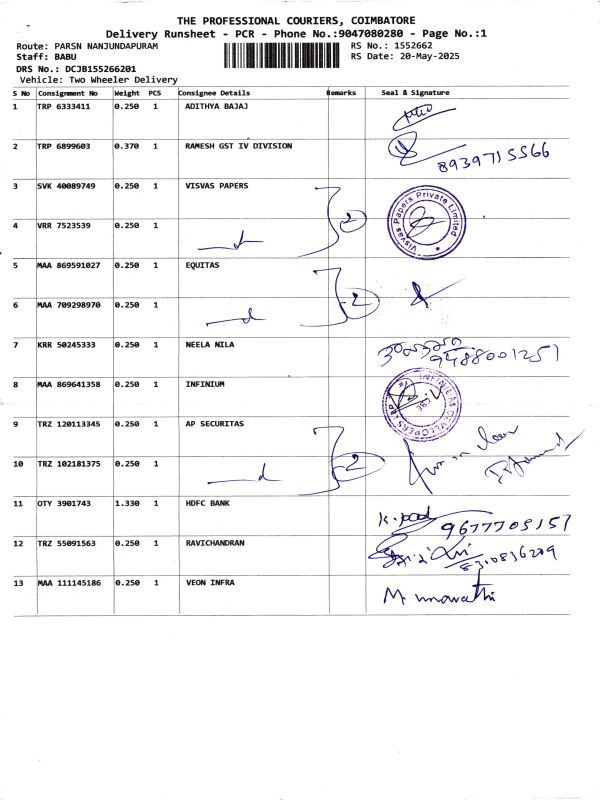 THE PROFESSIONAL COURIERS, COIMBATORE
Delivery Runsheet - PCR - Phone No.:9047080280 - Page No.:1
Route: PARSN NANJUNDAPURAM
RS No.: 1552662
Staff: BABU
RS Date: 20-May-2025
DRS No.: DCJB155266201
Vehicle: Two Wheeler Delivery
S No Consignment No Weight PCS Consignee Details Remarks Seal & Signature
1 TRP 6333411 0.250 1 ADITHYA BAJAJ
2 TRP 6899603 0.370 1 RAMESH GST IV DIVISION
8939715566
3 SVK 40089749 0.250 1 VISVAS PAPERS
Visvas Papers Private Limited
4 VRR 7523539 0.250 1
2
5 MAA 869591027 0.250 1 EQUITAS
6 MAA 709298970 0.250 1
2
7 KRR 50245333 0.250 1 NEELA NILA
9488001251
8 MAA 869641358 0.250 1 INFINIUM
INFINIUM DEVELOPERS LLP
9 TRZ 120113345 0.250 1 AP SECURITAS
10 TRZ 102181375 0.250 1
2
11 OTY 3901743 1.330 1 HDFC BANK
9677705157
12 TRZ 55091563 0.250 1 RAVICHANDRAN
8310836209
13 MAA 111145186 0.250 1 VEON INFRA